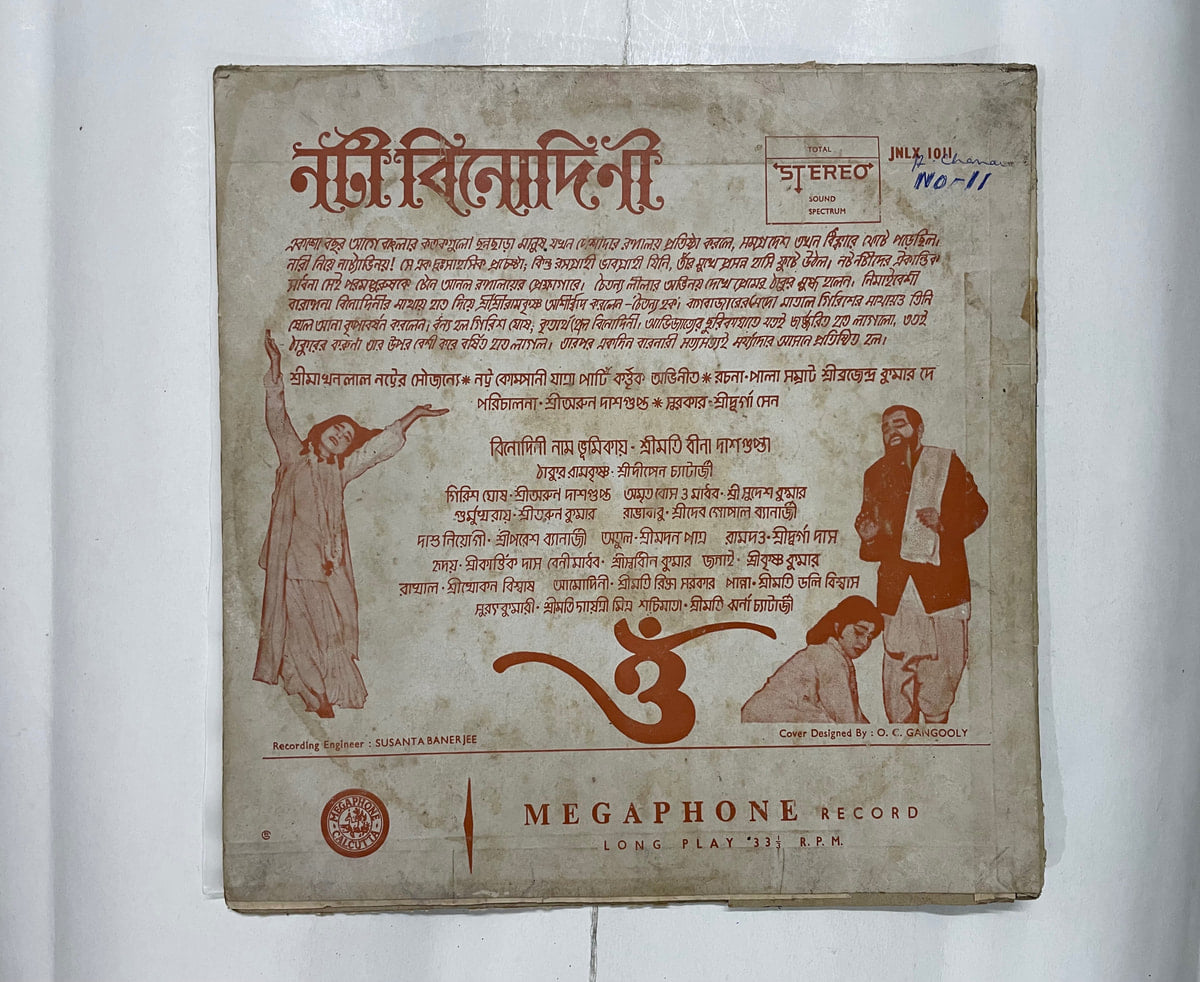 নটী বিনোদিনী
TOTAL
STEREO
SOUND
SPECTRUM
JNLX 1011
NO-11
একশো বছর আগে বাংলার কতকগুলো ছন্নছাড়া মানুষ যখন পেশাদার রঙ্গালয় প্রতিষ্ঠা করলে, সমগ্র দেশ তখন ধিক্কারে ফেটে পড়েছিল।
নারী নিয়ে নাট্যাভিনয়! সে এক দুঃসাহসিক প্রচেষ্টা; কিন্তু রসগ্রাহী ভাবগ্রাহী যিনি, তাঁর মুখে প্রসন্ন হাসি ফুটে উঠল। নট নটীদের ঐকান্তিক
সাধনা সেই পরমপুরুষকে টেনে আনল রঙ্গালয়ের প্রেক্ষাগারে। চৈতন্য লীলার অভিনয় দেখে প্রেমের ঠাকুর মুগ্ধ হলেন। নিমাইবেশী
বারাঙ্গনা বিনোদিনীর মাথায় হাত দিয়ে শ্রীশ্রীরামকৃষ্ণ আশীর্বাদ করলেন - চৈতন্য হক। বাগবাজারের মেদো মাতাল গিরিশের মাথায়ও তিনি
ষোল আনা কৃপাবর্ষন করলেন। ধন্য হল গিরিশ ঘোষ; কৃতার্থ হল বিনোদিনী। আভিজাত্যের ছুরিকাঘাতে যতই জর্জ্জরিত হতে লাগলো, ততই
ঠাকুরের করুনা তার উপর বেশী করে বর্ষিত হতে লাগল। তারপর একদিন বারনারী সত্যসত্যই মর্য্যাদার আসনে প্রতিষ্ঠিত হল।
শ্রীমাখনলাল নট্টের সৌজন্যে * নট্ট কোম্পানী যাত্রা পার্টি কর্ত্তৃক অভিনীত * রচনা · পালা সম্রাট শ্রীব্রজেন্দ্র কুমার দে
পরিচালনা · শ্রীঅরুন দাশগুপ্ত * সুরকার · শ্রীদুর্গা সেন
বিনোদিনী নাম ভূমিকায় · শ্রীমতি বীনা দাশগুপ্তা
ঠাকুর রামকৃষ্ণ · শ্রীদীপেন চ্যাটার্জী
গিরিশ ঘোষ · শ্রীঅরুন দাশগুপ্ত অমৃত বোস ও মাধব · শ্রী সুদেশ কুমার
গুর্মুখ রায় · শ্রীতরুন কুমার রাঙাবাবু · শ্রীদেব গোপাল ব্যানার্জী
দাশু নিয়োগী · শ্রীপরেশ ব্যানার্জী অতুল · শ্রীমদন পাত্র রামদত্ত · শ্রীদুর্গা দাস
হৃদয় · শ্রীকার্ত্তিক দাস বেনীমাধব · শ্রীসুধীন কুমার জগাই · শ্রীকৃষ্ণ কুমার
রাখাল · শ্রীখোকন বিশ্বাষ আমোদিনী · শ্রীমতি রিক্তা সরকার পান্না · শ্রীমতি ডলি বিশ্বাস
সুরৎ কুমারী · শ্রীমতি গায়ত্রী মিত্র শচিমাতা · শ্রীমতি ঝর্না চ্যাটার্জী
ওঁ
Recording Engineer : SUSANTA BANERJEE
Cover Designed By : O. C. GANGOOLY
MEGAPHONE
CALCUTTA
MEGAPHONE RECORD
LONG PLAY 33⅓ R. P. M.